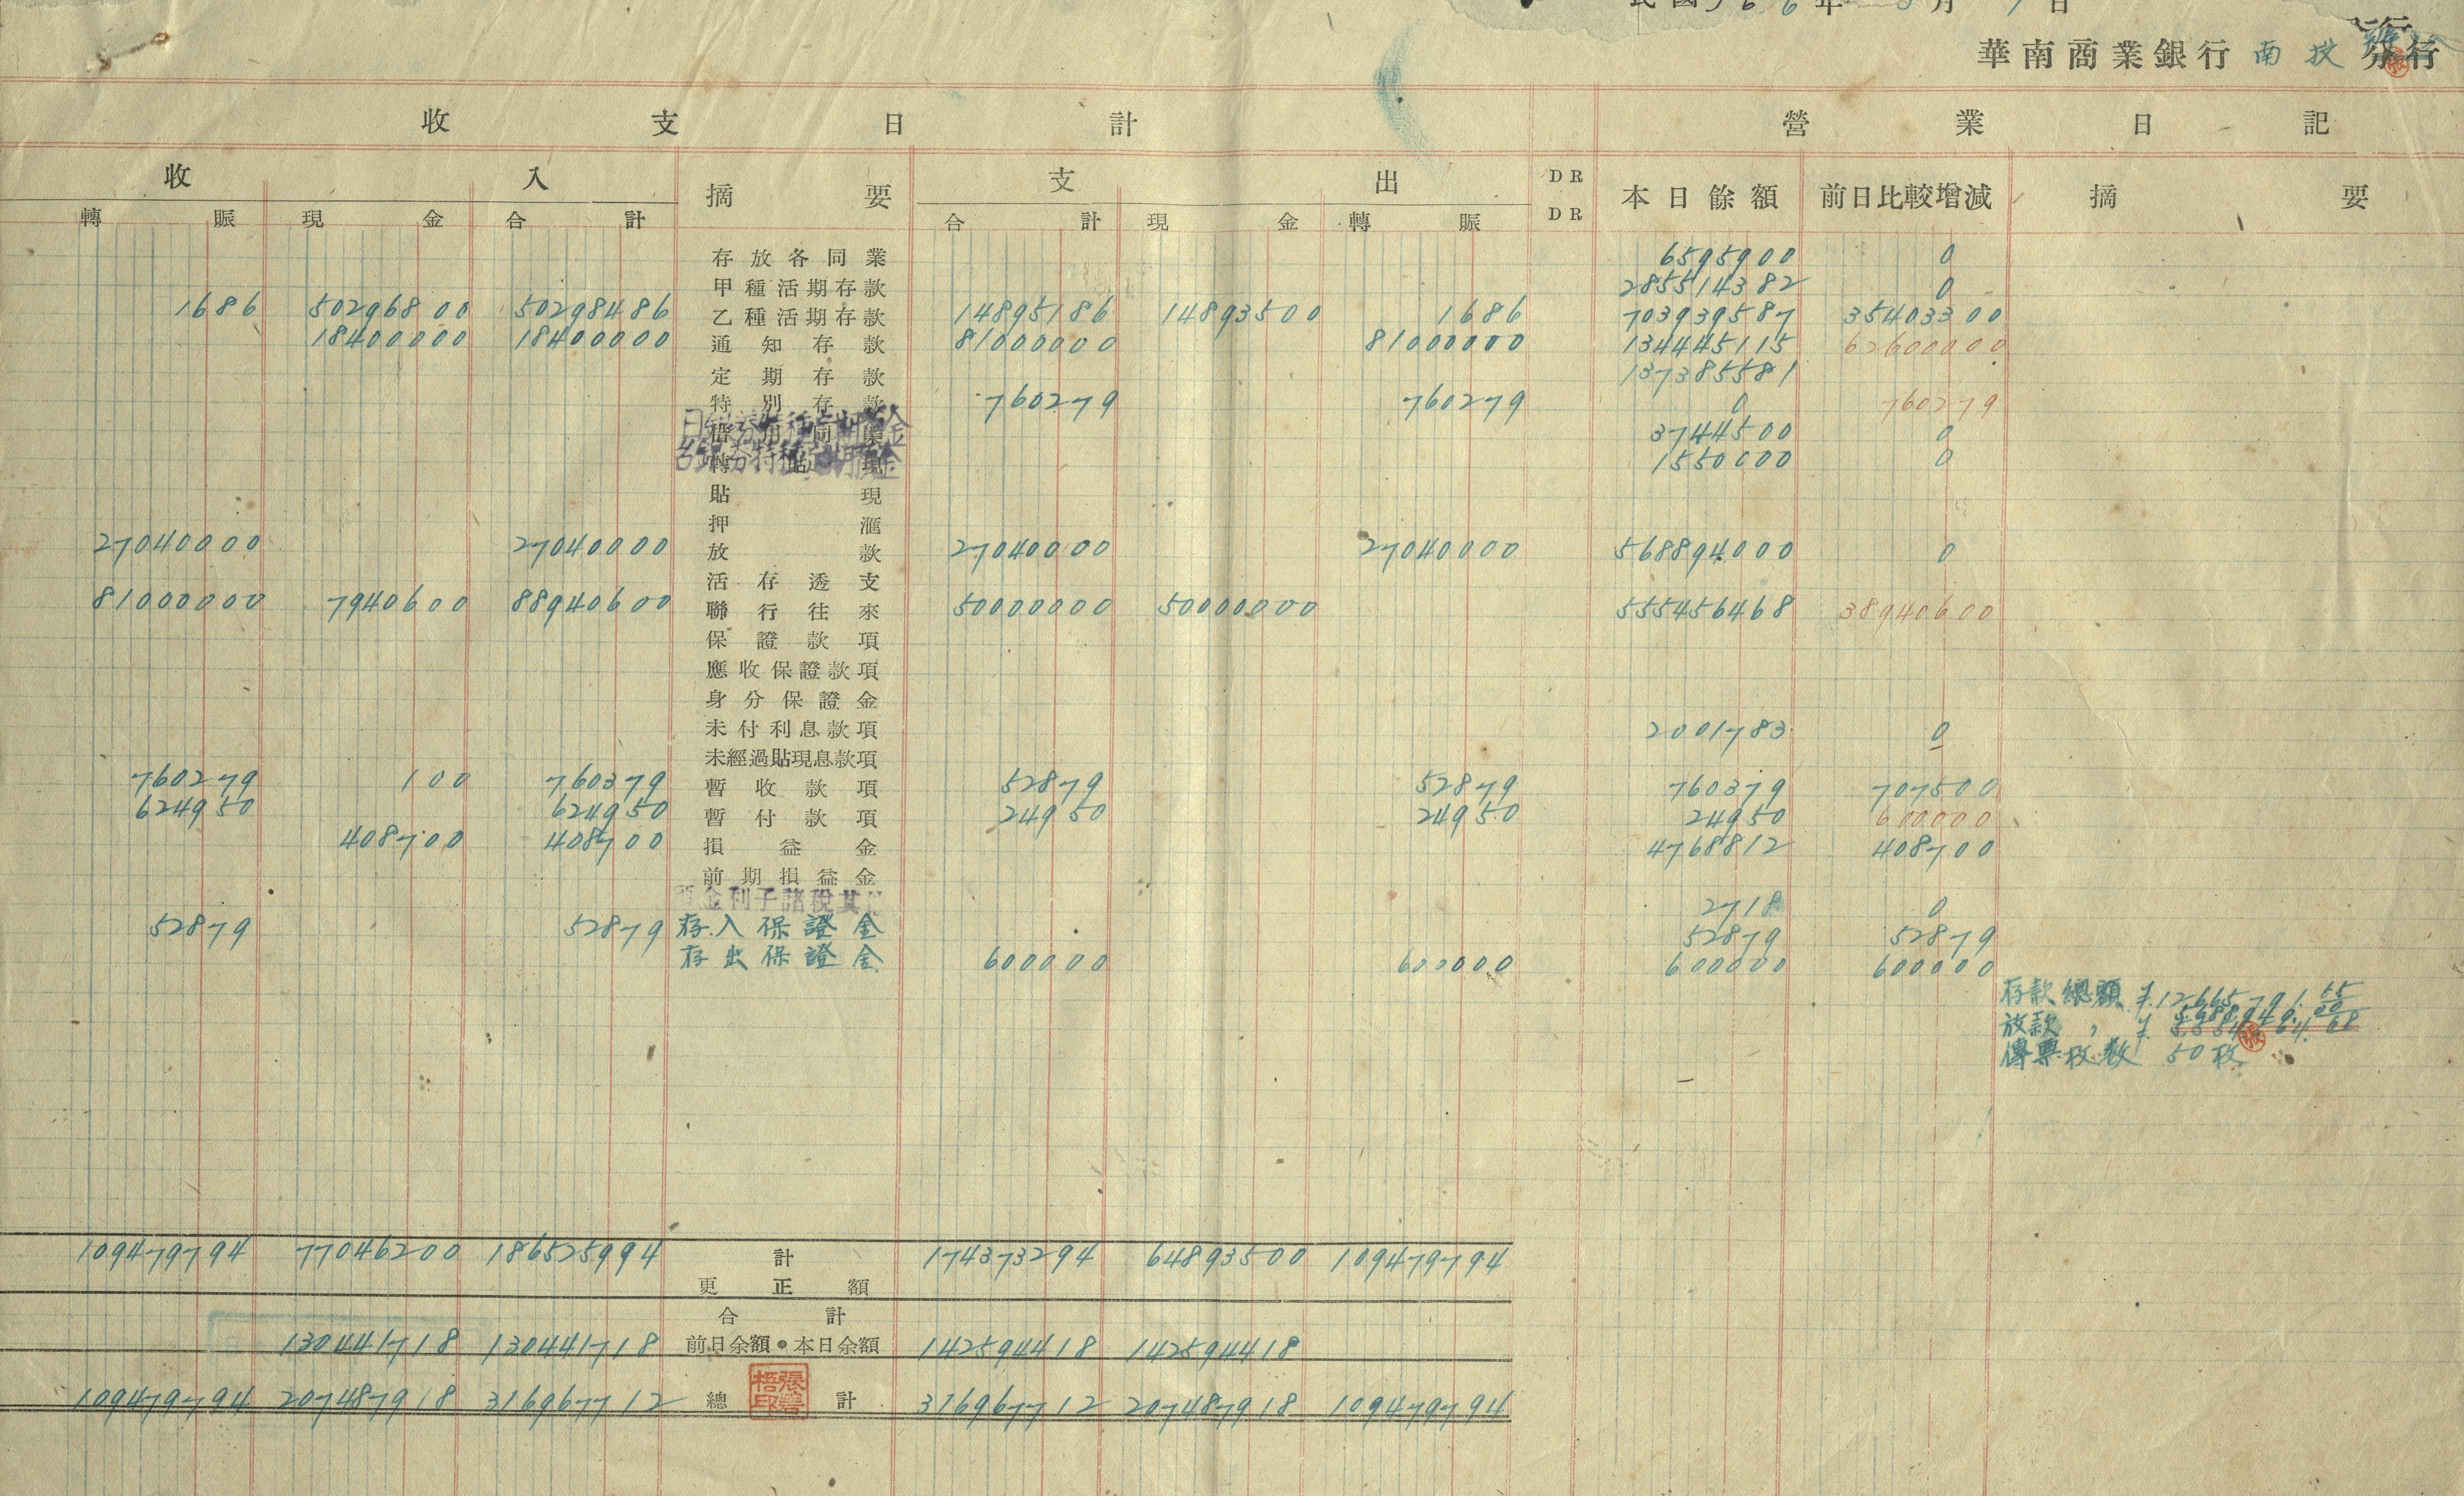 華南商業銀行 南投
收支日計 營業日記
收入 摘要 支出 DR 本日餘額 前日比較增減 摘要
轉賬 現金 合計 合計 現金 轉賬 DR
存放各同業 6595900 0
甲種活期存款 285514382 0
1686 50296800 50298486 乙種活期存款 14895186 14893500 1686 703939587 35403300
18400000 18400000 通知存款 81000000 81000000 134445115 62600000
定期存款 137385581
特別存款 760279 760279 0 760279
3744500 0
轉貼現 1550000 0
貼現
押滙
27040000 27040000 放款 27040000 27040000 568894000 0
活存透支
81000000 7940600 88940600 聯行往來 50000000 50000000 555456468 38940600
保證款項
應收保證款項
身分保證金
未付利息款項 2001783 0
未經過貼現息款項
760279 100 760379 暫收款項 52879 52879 760379 707500
624950 624950 暫付款項 24950 24950 24950 600000
408700 408700 損益金 4768812 408700
前期損益金
金利子諸稅其 2718 0
52879 52879 存入保證金 52879 52879
存出保證金 600000 600000 600000 600000
存款總額 ¥12665791.55
放款 〃 ¥
傳票枚數 50枚
109479794 77046200 186525994 計 174373294 64893500 109479794
更正額
合計
130441718 130441718 前日余額·本日余額 142594418 142594418
109479794 207487918 316967712 總計 316967712 207487918 109479794